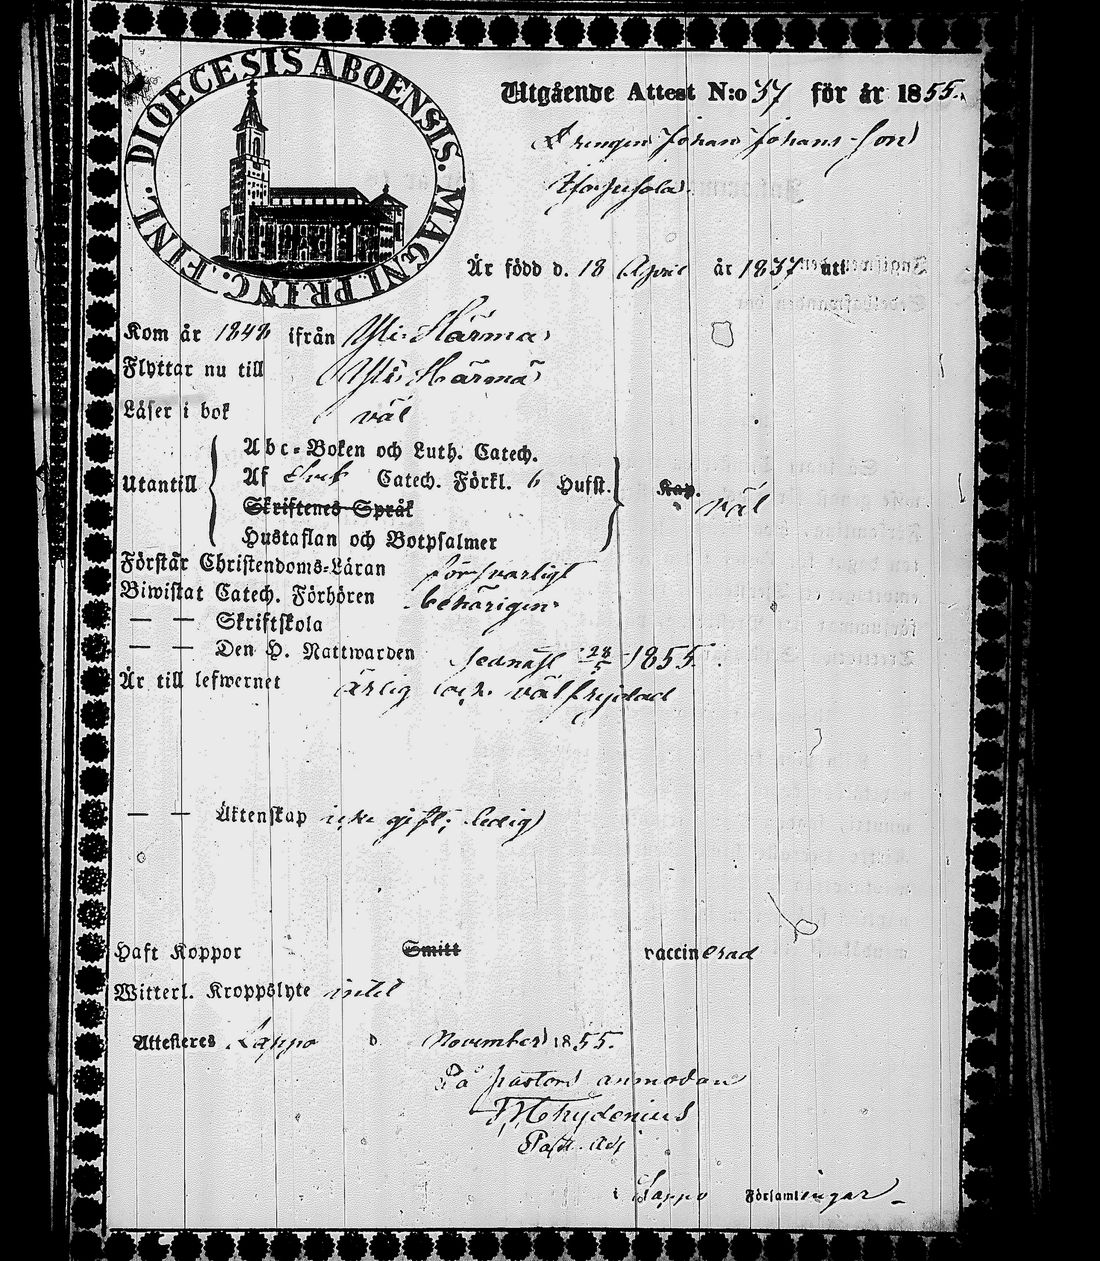 DIOECESIS ABOENSIS. MAGNI PRINC. FINL.
Utgående Attest N:o 37 för år 1855.
Drengen Johan Johans-son
Är född d. 18 April år 1837 uti
Kom år 1848 ifrån Yli-Härmä
Flyttar nu till Yli-Härmä
Läser i bok väl
Abc-Boken och Luth. Catech.
Utantill Af Catech. Förkl. 6 Hufst. Kap. väl
Skriftenes Språk
Hustaflan och Botpsalmer
Förstår Christendoms-Läran försvarligt
Biwistat Catech. Förhören behörigen
— — Skriftskola
— — Den H. Nattwarden sednast 28/5 1855.
Är till lefwernet ärlig och välfrejdad
— — Äktenskap icke gift; ledig
Haft Koppor Smitt vaccinerad
Witterl. Kroppslyte intet
Attesteres Lappo d. November 1855.
På pastors anmodan
Past. Adj.
i Lappo Församlingar